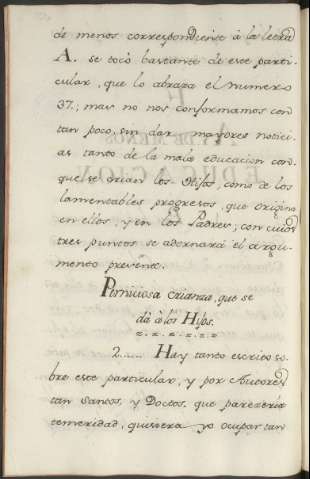 de menos correspondiente à la letra
A. se tocò bastante de este parti-
cular, que lo abraza el numero
37.; mas no nos conformamos con
tan poco, sin dar mayores notici-
as tanto de la mala educacion con
que se crian los Hijos, como de los
lamentables progresos, que origina
en ellos, y en los Padres; con cuios
tres puntos se adornarà el argu-
mento presente.
Perniciosa crianza, que se
dà à los Hijos.
2..... Hay tanto escrito so-
bre este particular, y por Autores
tan Santos, y Doctos, que pareceria
temeridad, quisiera yo ocupar tan